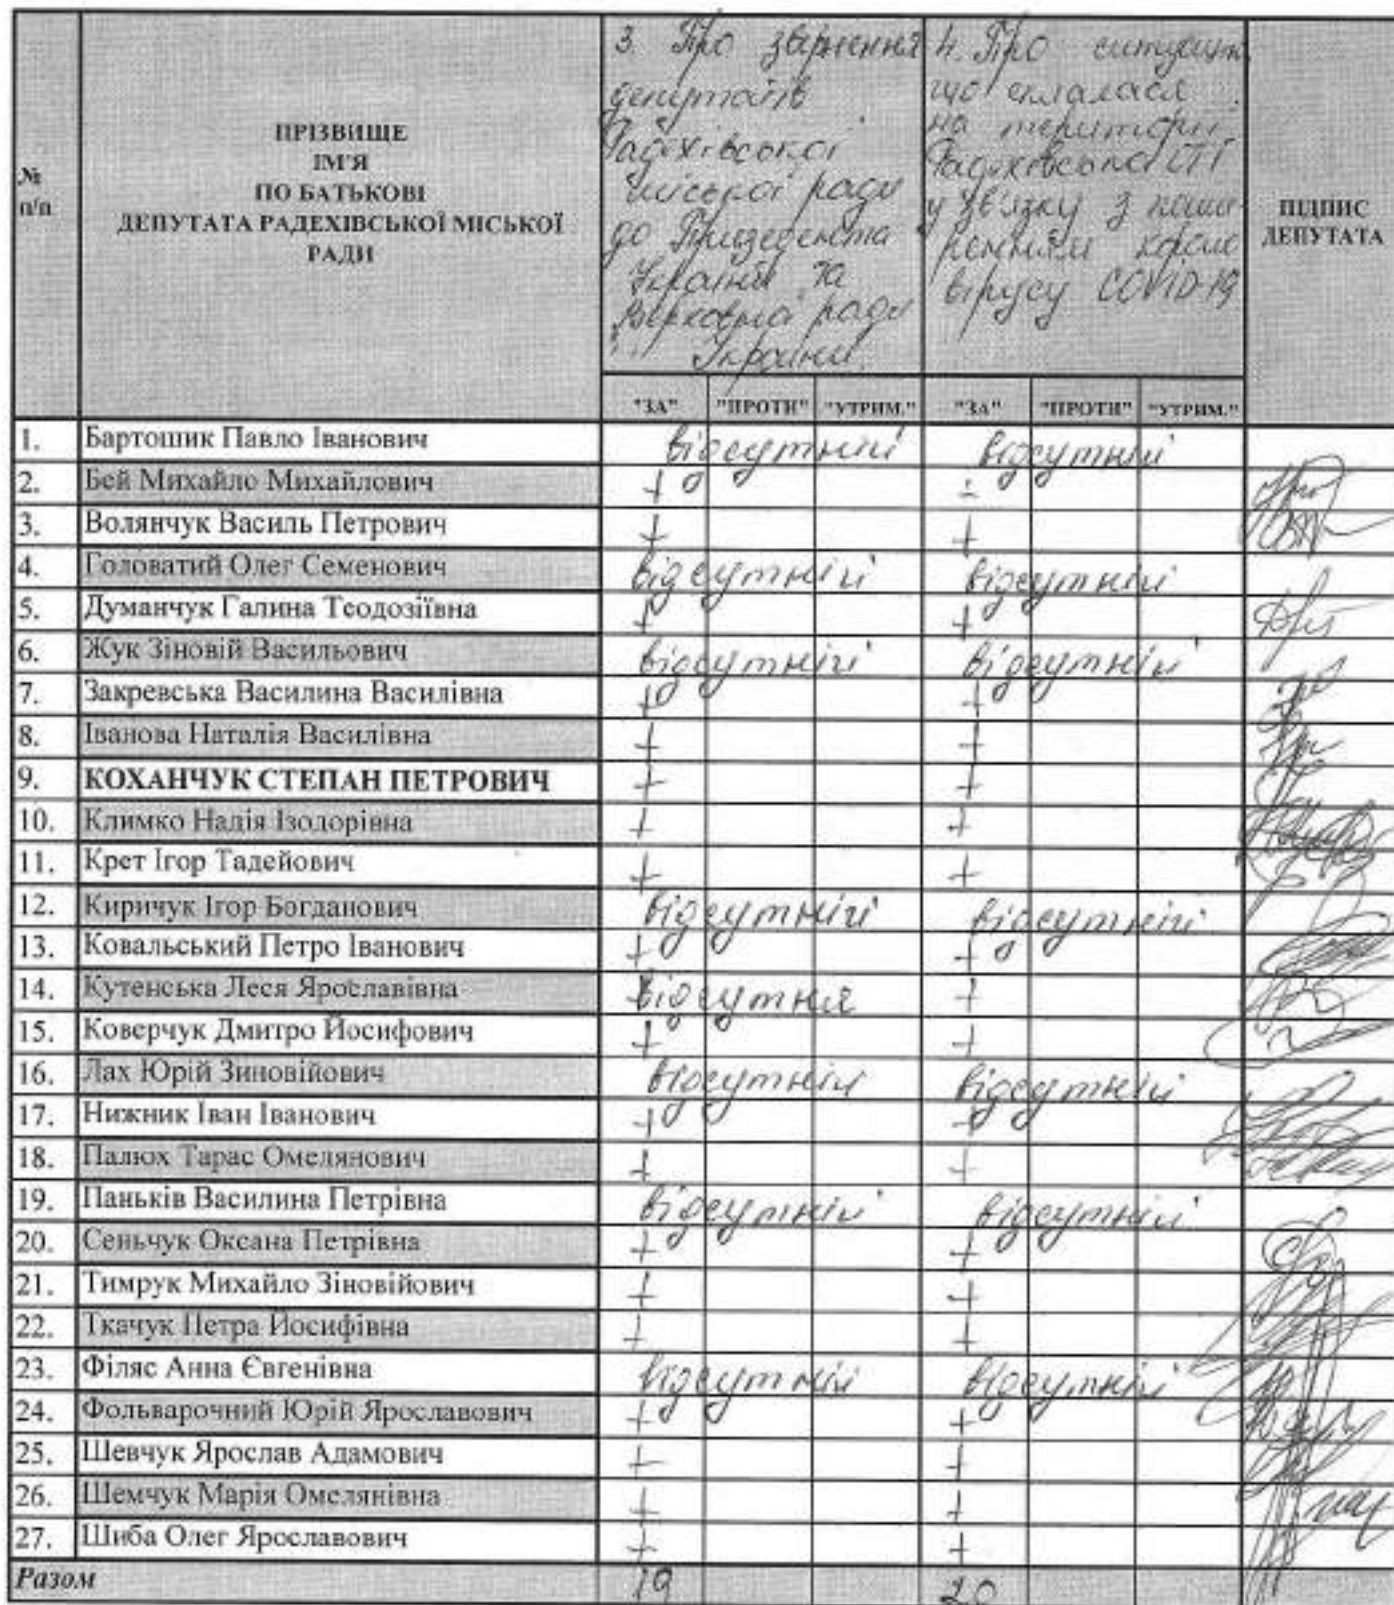 № п/п
ПРІЗВИЩЕ
ІМ'Я
ПО БАТЬКОВІ
ДЕПУТАТА РАДЕХІВСЬКОЇ МІСЬКОЇ
РАДИ
3. Про звернення
депутатів
Радехівської
міської ради
до Президента
України та
Верховної ради
України.
4. Про ситуацію
що склалася
на території
Радехівської ОТГ
у зв'язку з поши-
ренням корона
вірусу COVID-19
ПІДПИС
ДЕПУТАТА
"ЗА" "ПРОТИ" "УТРИМ." "ЗА" "ПРОТИ" "УТРИМ."
1. Бартошик Павло Іванович відсутній відсутній
2. Бей Михайло Михайлович + +
3. Волянчук Василь Петрович + +
4. Головатий Олег Семенович відсутній відсутній
5. Думанчук Галина Теодозіївна + +
6. Жук Зіновій Васильович відсутній відсутній
7. Закревська Василина Василівна + +
8. Іванова Наталія Василівна + +
9. КОХАНЧУК СТЕПАН ПЕТРОВИЧ + +
10. Климко Надія Ізодорівна + +
11. Крет Ігор Тадейович + +
12. Киричук Ігор Богданович відсутній відсутній
13. Ковальський Петро Іванович + +
14. Кутенська Леся Ярославівна відсутня +
15. Коверчук Дмитро Йосифович + +
16. Лах Юрій Зиновійович відсутній відсутній
17. Нижник Іван Іванович + +
18. Палюх Тарас Омелянович + +
19. Паньків Василина Петрівна відсутній відсутній
20. Сеньчук Оксана Петрівна + +
21. Тимрук Михайло Зіновійович + +
22. Ткачук Петра Йосифівна + +
23. Філяс Анна Євгенівна відсутній відсутній
24. Фольварочний Юрій Ярославович + +
25. Шевчук Ярослав Адамович + +
26. Шемчук Марія Омелянівна + +
27. Шиба Олег Ярославович + +
Разом 19 20